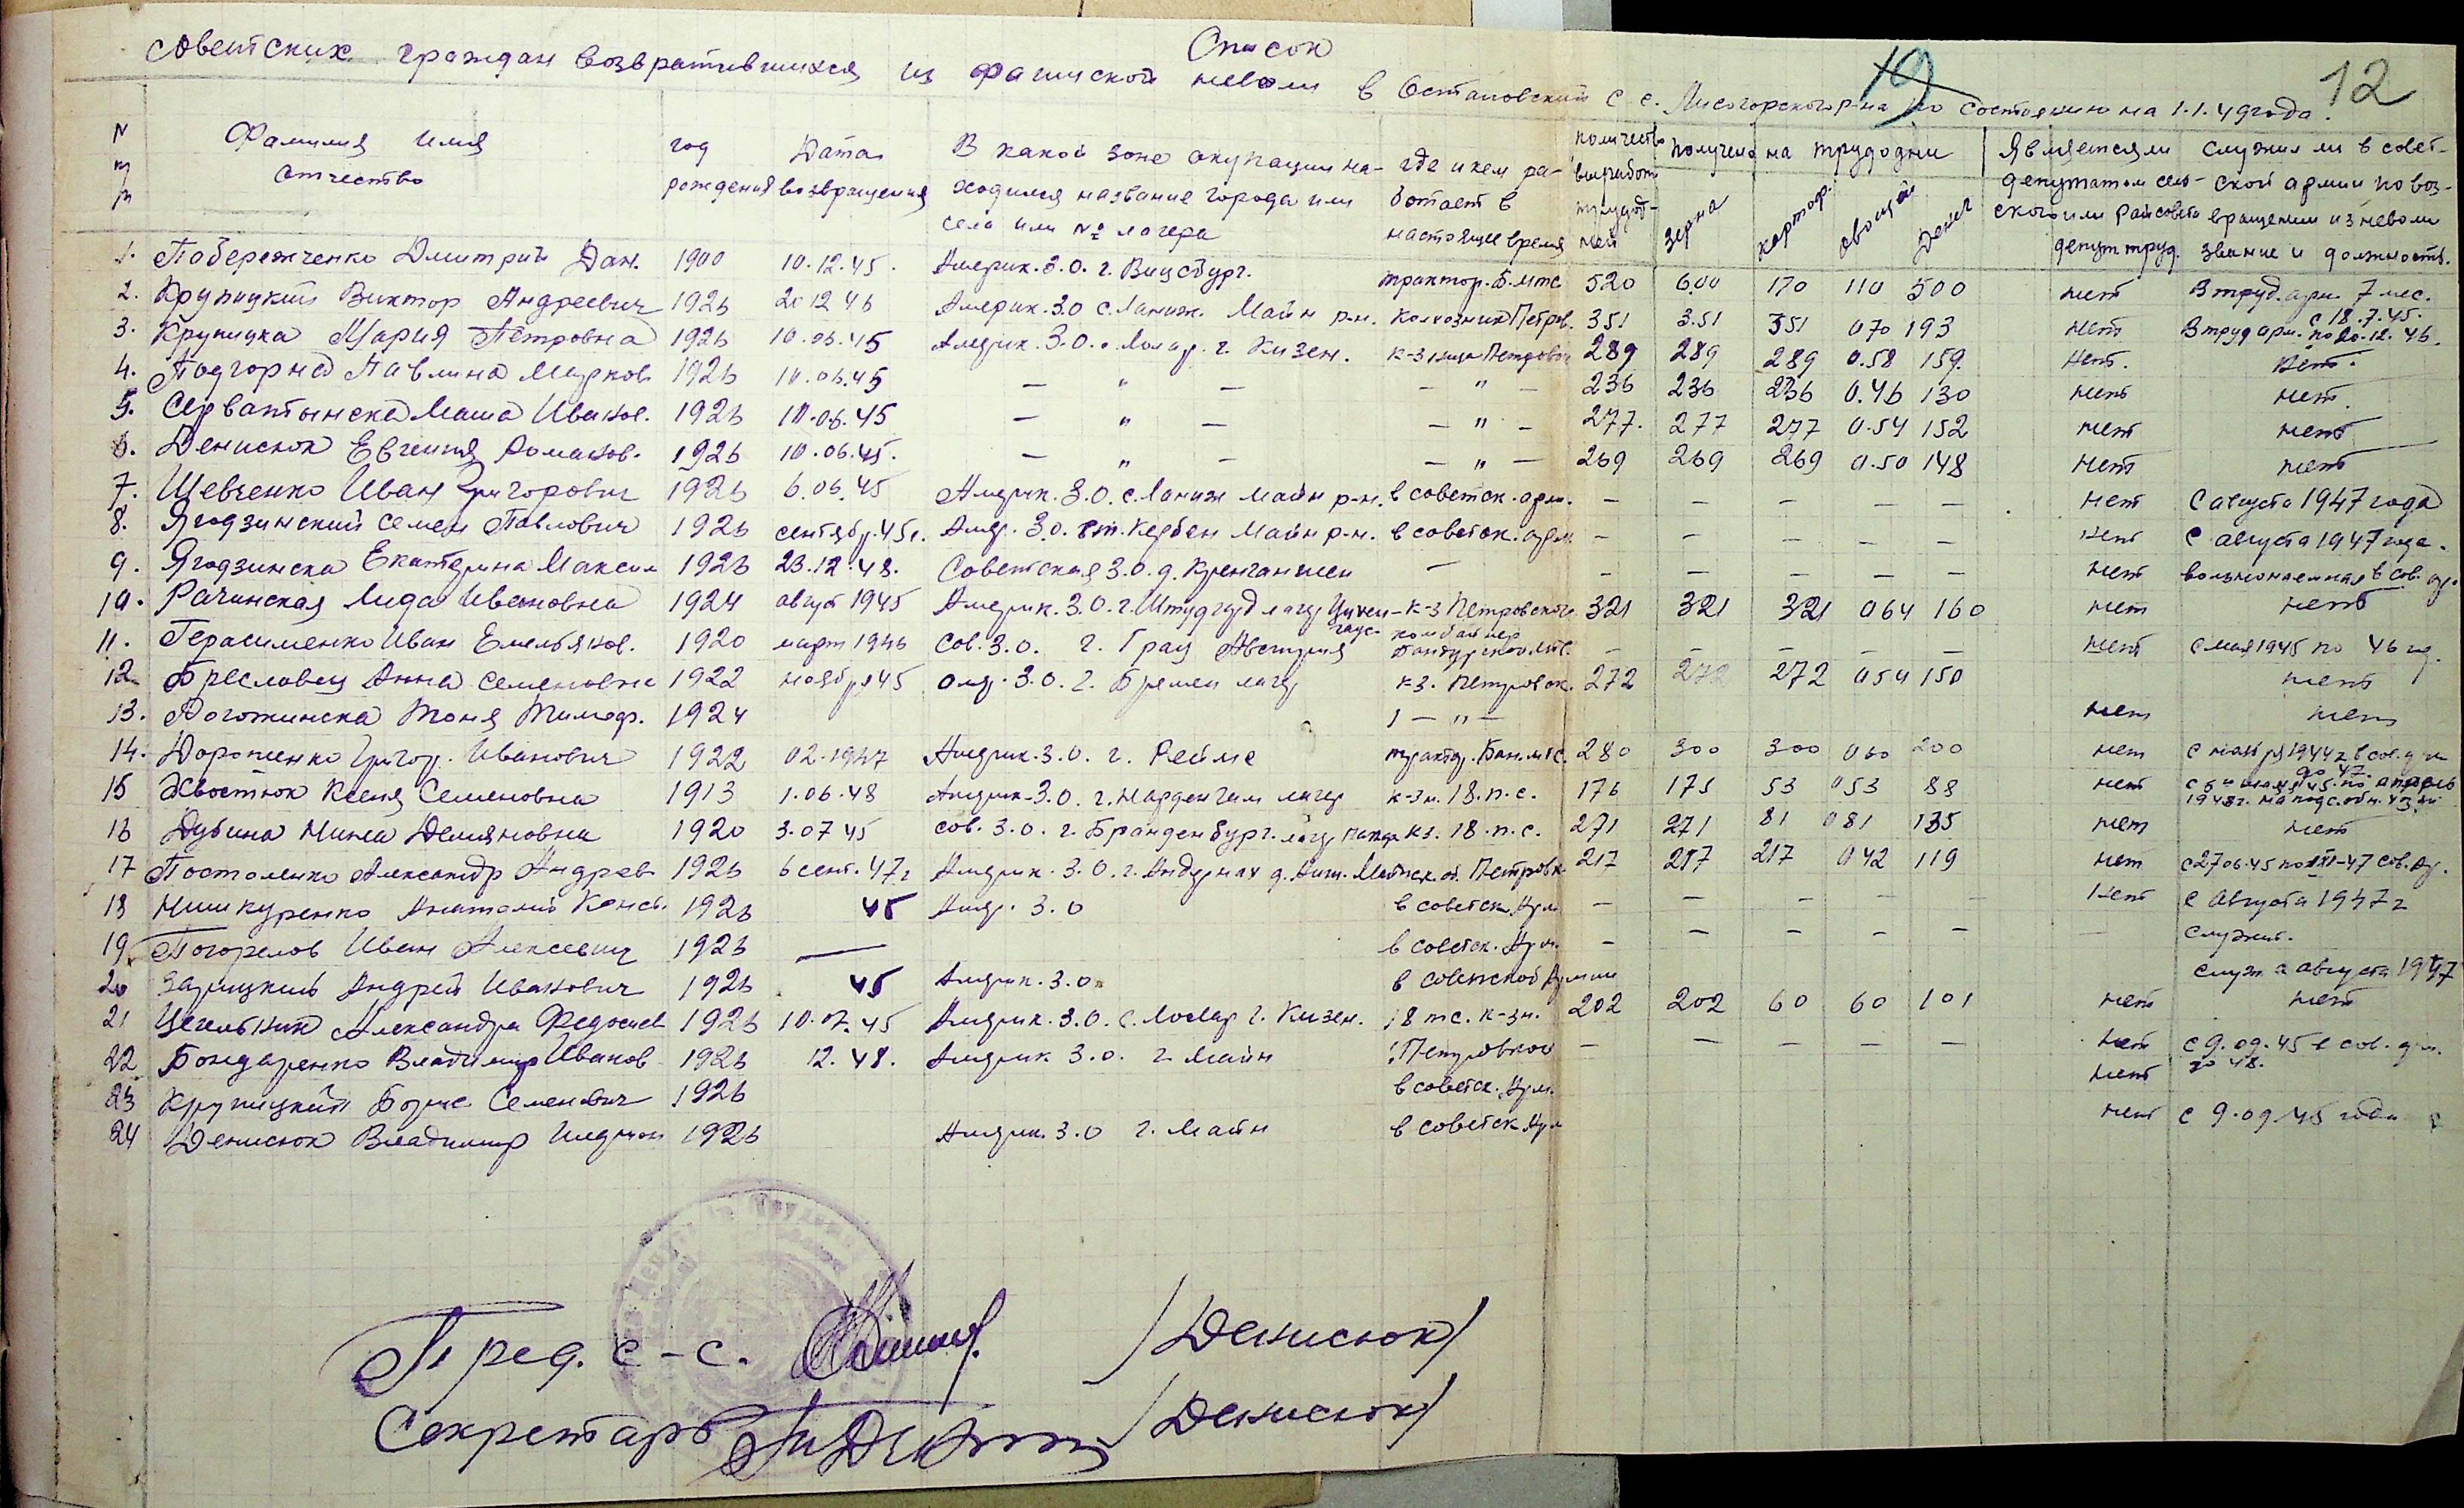 Список
12
19
советских граждан возвратившихся из фашиской неволи в Остаповский с.с. Лисогорского р-на по состоянию на 1.1.49 года.
N п п Фамилия Имя отчество год рождения Дата возвращения В какой зоне окупации находился название города или села или № лагера где и кем работает в настоящее время количество выработ трудодней получено на трудодни зерна картоф. овощей денег Является ли депутатом сельского или Райсовета депут труд. служил ли в советской армии по возвращении из неволи звание и должность.
1. Побережченко Дмитрий Дан. 1900 10.12.45. Америк. З.О. г. Вицбург. трактор. Б. мтс 520 600 170 110 500 нет В труд. арм 7 мес.
2. Крупицкий Виктор Андреевич 1926 20 12 46 Америк. З.О с. Ланиж. Майн р-н. Колхозник Петров. 351 3.51 351 070 193 нет В труд арм. с 18.7.45. по 20.12.46.
3. Крупицка Мария Петровна 1926 10.06.45 Америк. З.О. г. Кизен. к-з Петровск 289 289 289 0.58 159. нет. нет.
4. Подгорна Павлина Марков 1926 10.06.45 — " — — " — 236 236 236 0.46 130 нет нет.
5. Сервантынска Маша Иванов. 1926 10.06.45 — " — — " — 277. 277 277 0.54 152 нет нет
6. Денисюк Евгения Романов. 1926 10.06.45. — " — — " — 269 269 269 0.50 148 нет нет
7. Шевченко Иван Григорович 1926 6.06.45 Америк. З.О. с. Ланиж Майн р-н. в советск. арм. — — — — — нет С августа 1947 года
8. Ягодзинский Семен Павлович 1926 сентябр. 45 г. Амер. З.О. ст. Кербен Майн р-н. в советск. арм. — — — — — нет С августа 1947 года.
9. Ягодзинска Екатерина Максим 1926 23.12.48. Советская З.О. — — — — — — нет вольнонаемная в сов. ар.
10. Рачинская Лида Ивановна 1924 август 1945 Америк. З.О. г. Штудгард лагер к-з Петровского 321 321 321 064 160 нет нет
11. Герасименко Иван Емельянов. 1920 март 1946 Сов. З.О. г. Грац Австрия комбайнер мтс. — — — — — нет с мая 1945 по 46 г.
12. Бресловец Анна Семеновна 1922 ноябр 45 З.О. г. Бремен лагер к-з. Петровск. 272 272 272 054 150 нет
13. Рогожинска Тоня Тимоф. 1924 — " — нет нет
14. Дорошенко Григор. Иванович 1922 02.1947 Америк. З.О. г. Реймс трактор. Бан. мтс. 280 300 300 060 200 нет с 1944 г. в сов. арм до 47.
15 Хвостюк Ксеня Семеновна 1913 1.06.48 Америк. З.О. г. лагер к-з н. 18. п.с. 176 175 53 053 88 нет с 45. по апрель 1948 г.
16 Дубина Нина Демяновна 1920 3.07 45 сов. З.О. г. Бранденбург. лагер кз. 18. п.с. 271 271 81 081 135 нет нет
17 Постоленко Александр Андреев 1926 6 сент. 47 г Америк. З.О. г. Андернах Петровк. 217 217 217 042 119 нет с 27 06.45 47 сов. Ар.
18 Нишкуренко Анатолий Конст. 1926 45 Амер. З.О в советск. Арм — — — — — нет с августа 1947 г
19. Погорелов Иван Алексеевич 1926 — в советск. Арм. — — — — — служит.
20 Зарицкий Андрей Иванович 1926 45 Америк. З.О. в советской Армии служ с августа 1947
21 Цегельник Александра Федосиев 1926 10.07.45 Америк. З.О. г. Кизен. 18 пс. к-зн. 202 202 60 60 101 нет нет
22 Бондаренко Владимир Иванов 1926 12.48. Америк З.О. г. Майн Петровког — — — — — нет с 9.09.45 в сов. арм. до 48.
23 Крупицкий Борис Семенович 1926 в советск. Арм. нет
24 Денисюк Владимир 1926 Америк. З.О г. Майн в советск Арм нет с 9.09.45 года
Пред. с-с. /Денисюк/
Секретарь /Денисюк/